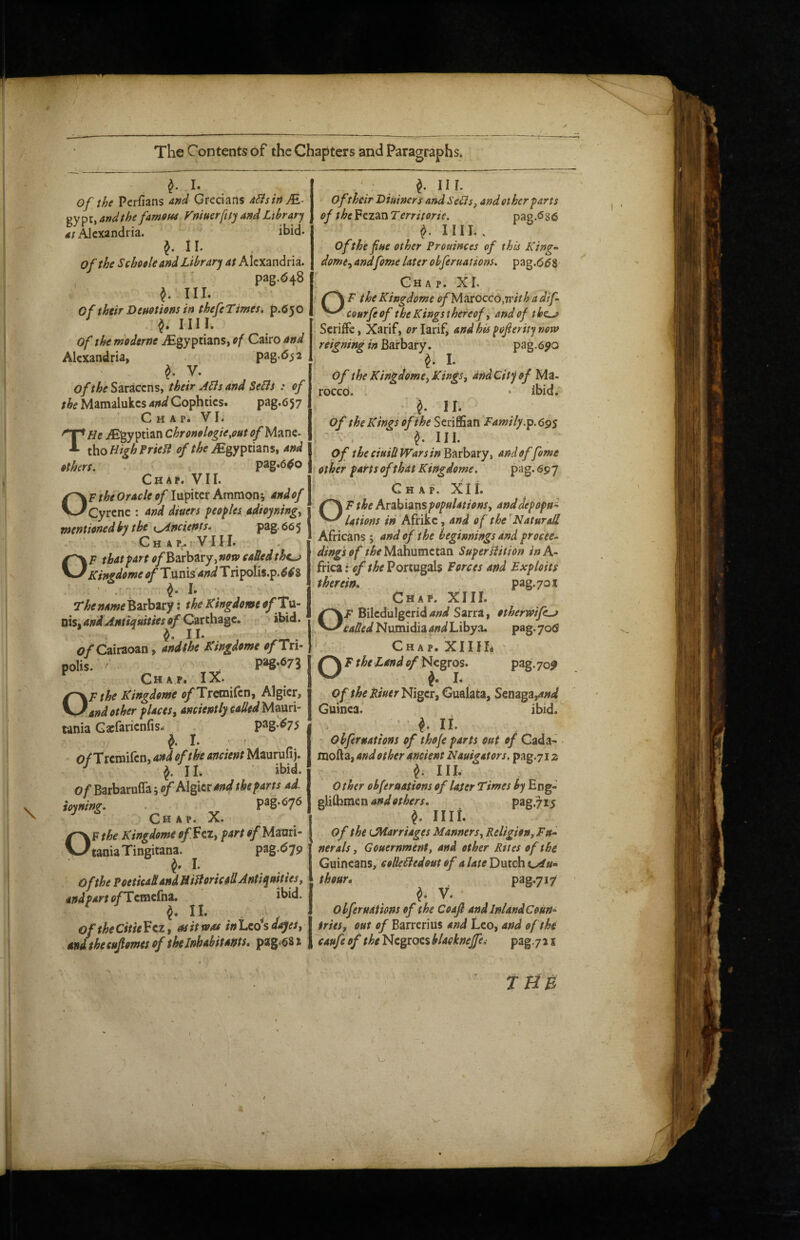 The Contents of the Chapters and Paragraphs.
§. I.
Of the Persians and Grecians Acts in Æ-
gypt, and the famous Vniuersity and Library
at Alexandria. ibid.
§. II.
Of the Schoole and Library at Alexandria.
pag.648
§. III.
Of their Deuotions in these Times. p.650
§. IIII.
Of the moderne Ægyptians, of Cairo and
Alexandria, pag.652
§. V.
Of the Saracens, their Acts and Sects : of
the Mamalukes and Cophtics. pag.657
CHAP. VI.
THe Ægyptian Chronologie, out of Mane-
tho High Priest of the Ægyptians, and
others. pag.660
CHAP. VII.
OF the Oracle of Iupiter Ammon; and of
Cyrene : and diuers peoples adioyning,
mentioned by the Ancients. pag.665
CHAP. VIII.
OF that part of Barbary, now called the
Kingdome of Tunis and Tripolis.p.668
§. I.
The name Barbary : the Kingdome of Tu-
nis, and Antiquities of Carthage. ibid.
§. II.
of Cairaoan, and the Kingdome of Tri-
polis. pag.673
CHAP. IX.
OF the Kingdome of Tremisen, Algier,
and other places, anciently called Mauri-
tania Cæsariensis. pag.675
§. I.
Of Tremisen, and of the ancient Maurusij.
§. II. ibid.
Of Barbarussa; of Algier and the parts ad-
ioyning. pag.676
CHAP. X.
OF the Kingdome of Fez, part of Mauri-
tania Tingitana. pag.679
§. I.
Of the Poeticall and Historicall Antiquities,
and part of Temesna. ibid.
§. II.
Of the Citie Fez, as it was in Leo's dayes,
and the customes of the Inhabitants. pag.681
§. III.
Of their Diuiners and Sects, and other parts
of the Fezan Territorie. pag.686
§. IIII.
Of the fiue other Prouinces of this King-
dome, and some later obseruations. pag.668
CHAP. XI.
OF the Kingdome of Marocco, with a dis-
course of the Kings thereof, and of the
Seriffe, Xarif, or Iarif, and his posterity now
reigning in Barbary. pag.690
§. I.
Of the Kingdome, Kings, and City of Ma-
rocco. ibid.
§. II.
Of the Kings of the Seriffian Family.p.695
§. III.
Of the ciuill Wars in Barbary, and of some
other parts of that Kingdome. pag.697
CHAP. XII.
OF the Arabians populations, and depopu-
lations in Afrike, and of the Naturall
Africans; and of the beginnings and procee-
dings of the Mahumetan Superstition in A-
frica : of the Portugals Forces and Exploits
therein. pag.701
CHAP. XIII.
OF Biledulgerid and Sarra, otherwise
called Numidia and Libya. pag.706
CHAP. XIIII.
OF the Land of Negros. pag.709
§. I.
Of the Riuer Niger, Gualata, Senaga, and
Guinea. ibid.
§. II.
Obseruations of those parts out of Cada-
mosta, and other ancient Nauigators. pag.712
§. III.
Other obseruations of later Times by Eng-
glishmen and others. pag.715
§. IIII.
Of the Marriages Manners, Religion, Fu-
nerals, Gouernment, and other Rites of the
Guineans, collected out of a late Dutch Au-
thour. pag.717
§. V.
Obseruations of the Coast and Inland Coun-
tries, out of Barrerius and Leo, and of the
cause of the Negroes blacknesse. pag.721
THE